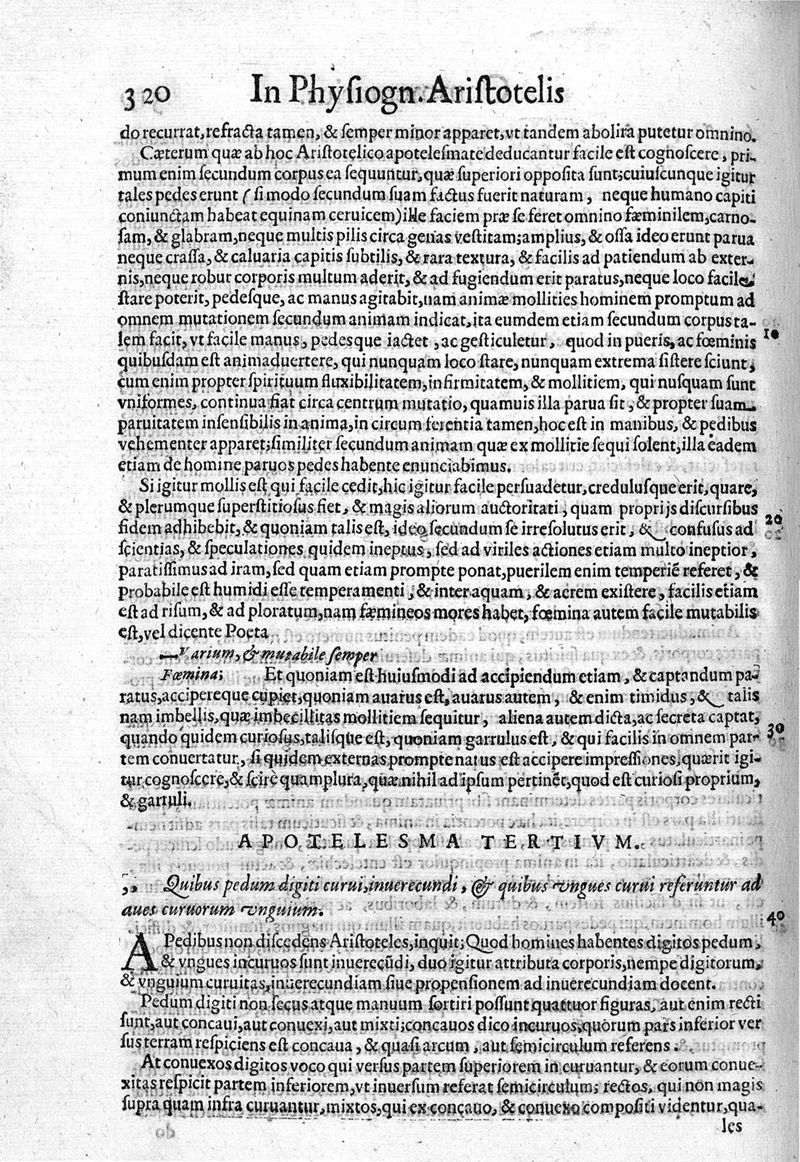 320 In Physiogn. Aristotelis
do recurrat, refracta tamen, & semper minor apparet, vt tandem abolita putetur omnino.
Cæterum quæ ab hoc Aristotelico apotelesmate deducantur facile est cognoscere, pri-
mum enim secundum corpus ea sequuntur, quæ superiori opposita sunt; cuiuscunque igitur
tales pedes erunt (si modo secundum suam factus fuerit naturam, neque humano capiti
coniunctam habeat equinam ceruicem) ille faciem præ se feret omnino fæminilem, carno-
sam, & glabram, neque multis pilis circa genas vestitam; amplius, & ossa ideo erunt parua
neque crassa, & caluaria capitis subtilis, & rara textura, & facilis ad patiendum ab exter-
nis, neque robur corporis multum aderit, & ad fugiendum erit paratus, neque loco facile
stare poterit, pedesque, ac manus agitabit, nam animæ mollities hominem promptum ad
omnem mutationem secundum animam indicat, ita eumdem etiam secundum corpus ta-
lem facit, vt facile manus, pedesque iactet, ac gesticuletur, quod in pueris, ac fœminis 10
quibusdam est animaduertere, qui nunquam loco stare, nunquam extrema sistere sciunt,
cum enim propter spirituum fluxibilitatem, infirmitatem, & mollitiem, qui nusquam sunt
vniformes, continua fiat circa centrum mutatio, quamuis illa parua sit, & propter suam
paruitatem insensibilis in anima, in circum ferentia tamen, hoc est in manibus, & pedibus
vehementer apparet; similiter secundum animam quæ ex mollitie sequi solent, illa eadem
etiam de homine paruos pedes habente enunciabimus.
Si igitur mollis est qui facile cedit, hic igitur facile persuadetur, credulusque erit, quare,
& plerumque superstitiosus fiet, & magis aliorum auctoritati, quam proprijs discursibus
fidem adhibebit, & quoniam talis est, ideo secundum se irresolutus erit, & confusus ad 20
scientias, & speculationes quidem ineptus, sed ad viriles actiones etiam multo ineptior,
paratissimus ad iram, sed quam etiam prompte ponat, puerilem enim temperiẽ referet, &
probabile est humidi esse temperamenti, & inter aquam, & aerem existere, facilis etiam
est ad risum, & ad ploratum, nam fæmineos mores habet, fœmina autem facile mutabilis
est, vel dicente Poeta
—Varium, & mutabile semper
Fœmina; Et quoniam est huiusmodi ad accipiendum etiam, & captandum pa-
ratus, accipereque cupiet, quoniam auarus est, auarus autem, & enim timidus, & talis
nam imbellis, quæ imbecillitas mollitiem sequitur, aliena autem dicta, ac secreta captat,
quando quidem curiosus, talisque est, quoniam garrulus est, & qui facilis in omnem par- 30
tem conuertatur, si quidem externas prompte natus est accipere impressiones, quærit igi-
tur cognoscere, & scire quamplura, quæ nihil ad ipsum pertinẽt, quod est curiosi proprium,
& garruli.
APOTELESMA TERTIVM.
,, Quibus pedum digiti curui, inuerecundi, & quibus vngues curui referuntur ad
aues curuorum vnguium. 40
A Pedibus non discedens Aristoteles, inquit; Quod homines habentes digitos pedum,
& vngues incuruos sunt inuerecũdi, duo igitur attributa corporis, nempe digitorum,
& vnguium curuitas, inuerecundiam siue propensionem ad inuerecundiam docent.
Pedum digiti non secus atque manuum sortiri possunt quattuor figuras, aut enim recti
sunt, aut concaui, aut conuexi, aut mixti; concauos dico incuruos, quorum pars inferior ver
sus terram respiciens est concaua, & quasi arcum, aut semicirculum referens.
At conuexos digitos voco qui versus partem superiorem in curuantur, & eorum conue-
xitas respicit partem inferiorem, vt inuersum referat semicirculum; rectos, qui non magis
supra quam infra curuantur, mixtos, qui ex concauo, & conuexo compositi videntur, qua-
les